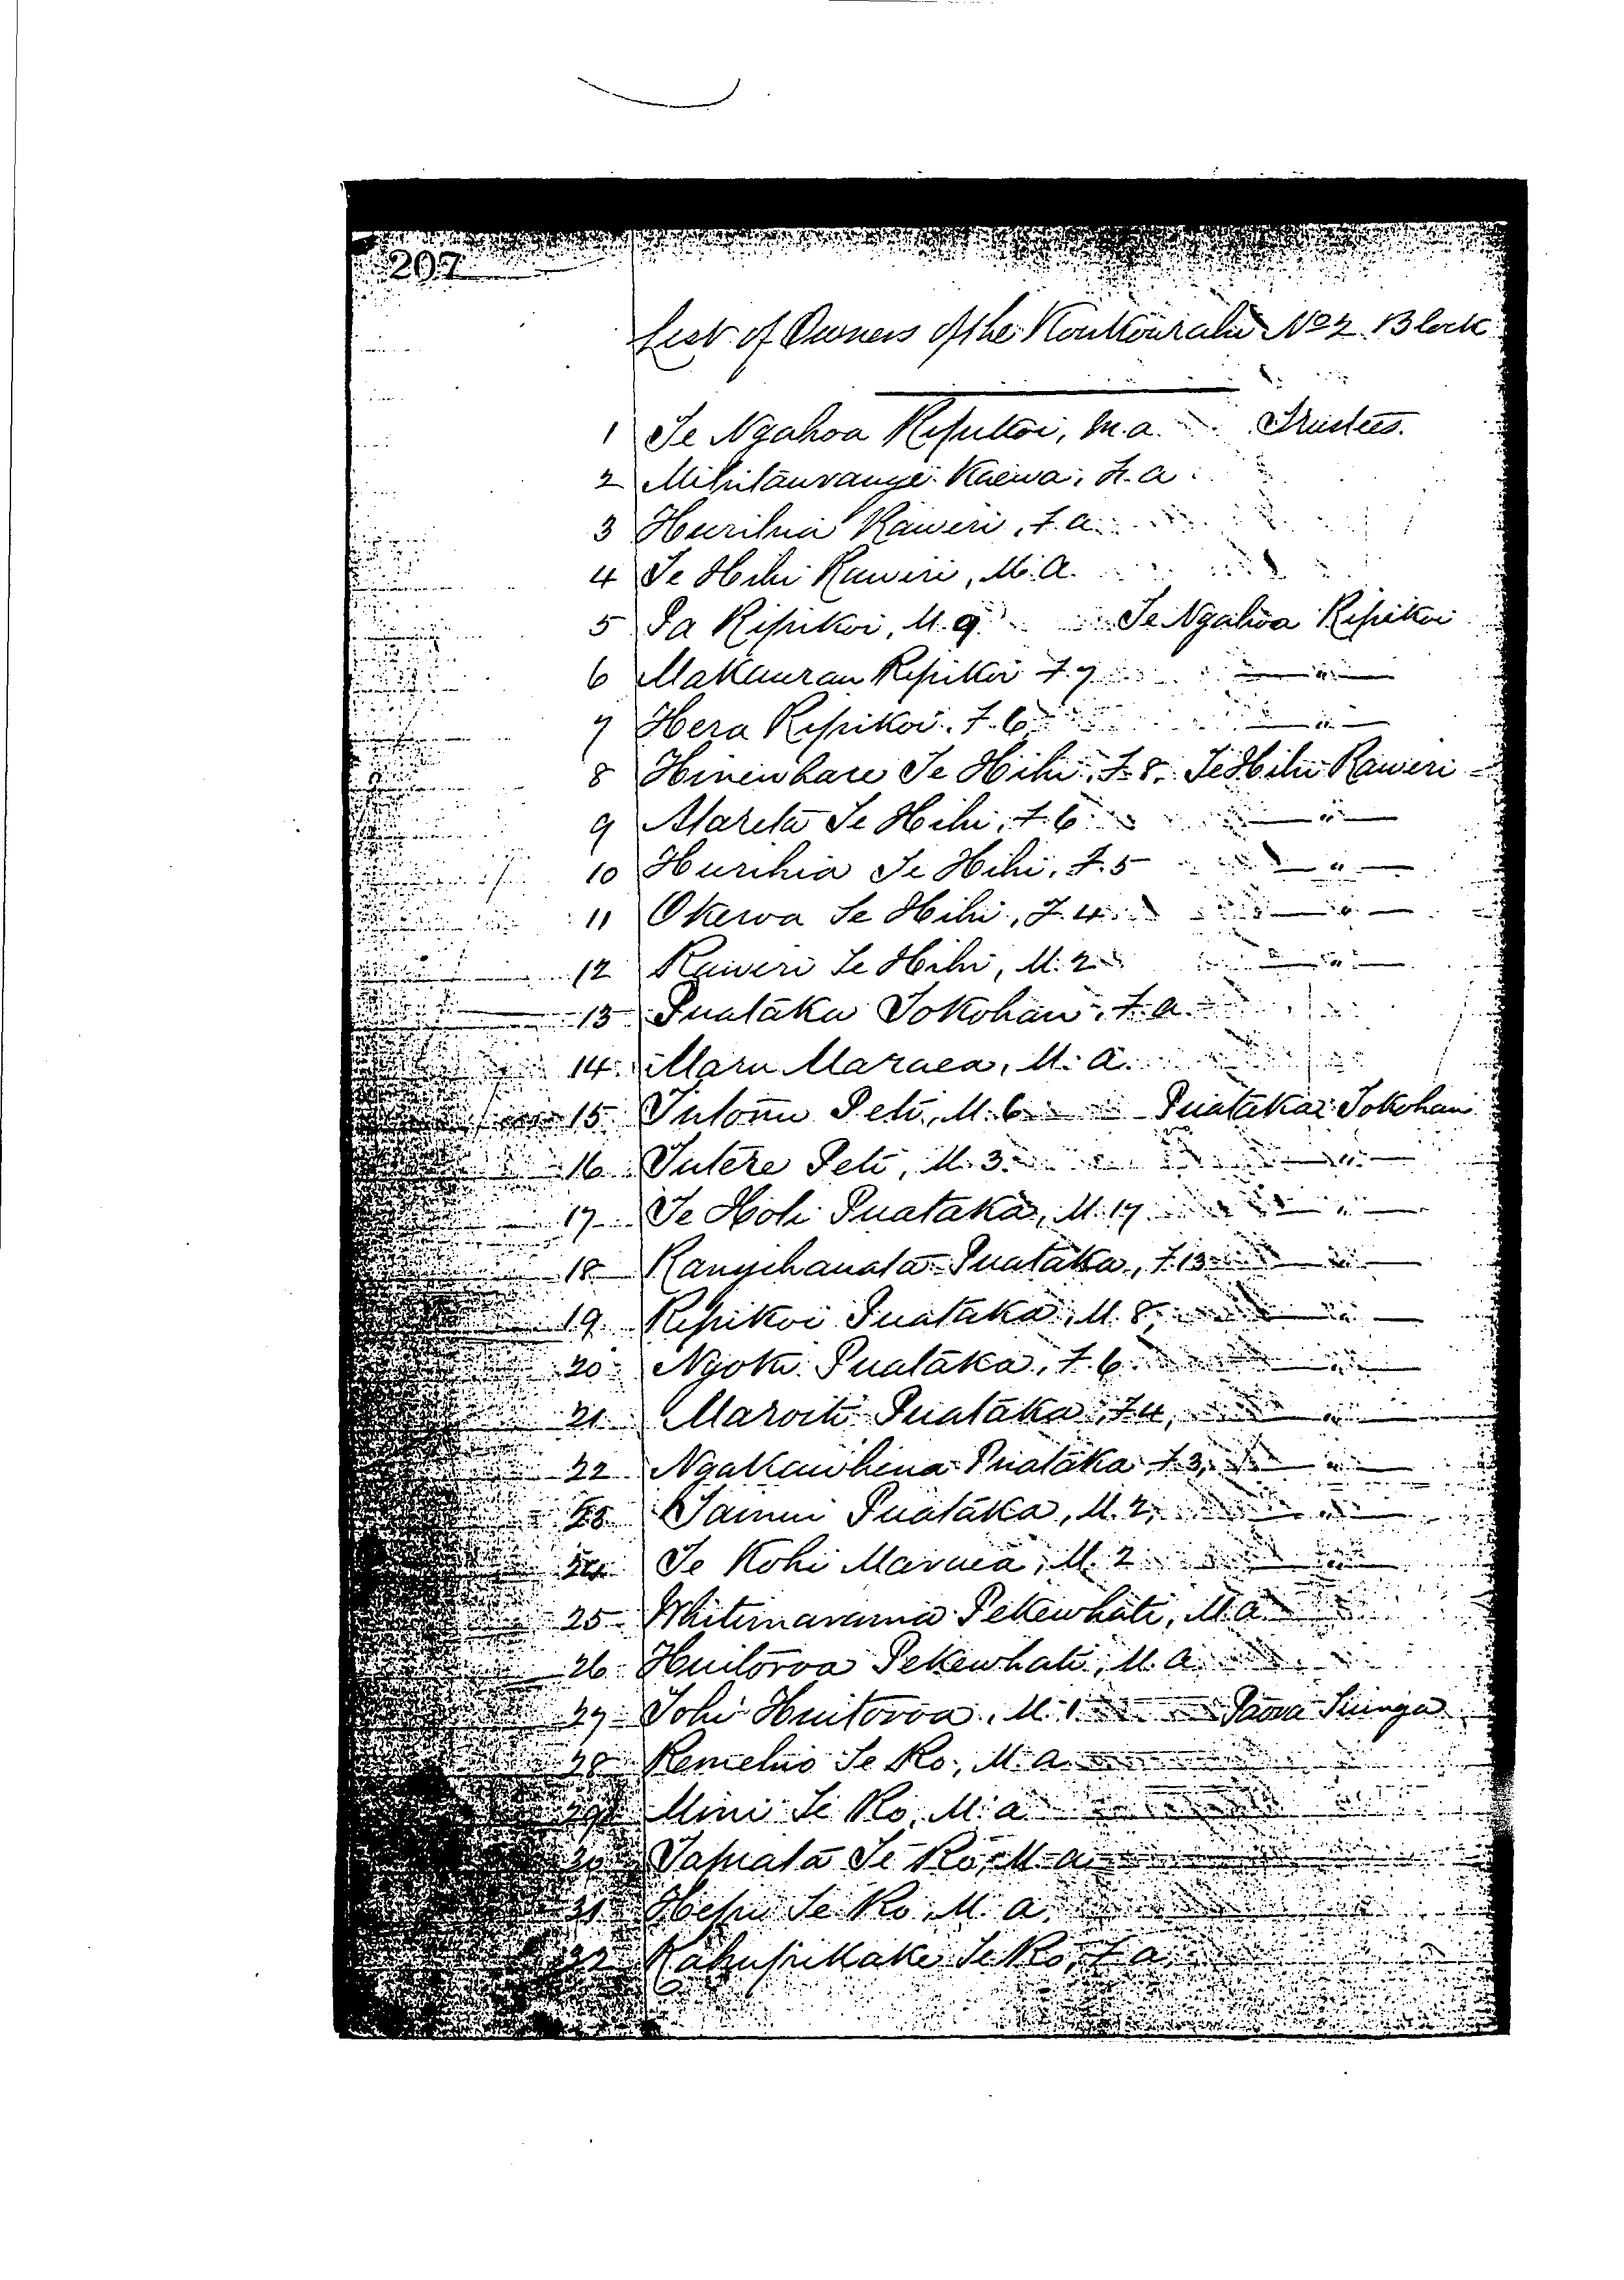 207
List of Owners of the Koukourahi No 2 Block
1 Te Ngahoa Ripikoi, M.a. Trustees.
2 Mihitaurangi Kaewa, F.a.
3 Hurihia Raweri, F.a.
4 Te Hihi Raweri, M.a.
5 Pa Ripikoi, M.9 Te Ngahoa Ripikoi
6 Makaurau Ripikoi F.7 — " —
7 Hera Ripikoi. F.6 — " —
8 Hinewhare Te Hihi, F.8. Te Hihi Raweri
9 Atareti Te Hihi, F.6 — " —
10 Hurihia Te Hihi, F.5 — " —
11 Okewa Te Hihi, F.4 — " —
12 Raweri Te Hihi, M.2 — " —
13 Puataka Tokohau, F.a.
14 Maru Maraea, M.a.
15 Tutonu Peti, M.6 Puataka Tokohau
16 Tutere Peti, M.3. — " —
17 Te Hoti Puataka, M.17 — " —
18 Rangihauata Puataka, F.13 — " —
19 Ripikoi Puataka, M.8, — " —
20 Ngoki Puataka, F.6. — " —
21 Maroiti Puataka, F.4, — " —
22 Ngakawhena Puataka, F.3, — " —
23 Tainui Puataka, M.2, — " —
24 Te Kohi Maraea, M.2 — " —
25 Whitimarama Pekewhati, M.a
26 Huitoroa Pekewhati, M.a.
27 Tohi Huitoroa, M.1 Paora Tiunga
28 Remehio Te Ro, M.a.
29 Mini Te Ro, M.a
30 Tapuata Te Ro, M.a.
31 Hepi Te Ro, M.a.
32 Kahupukake Te Ro, F.a.